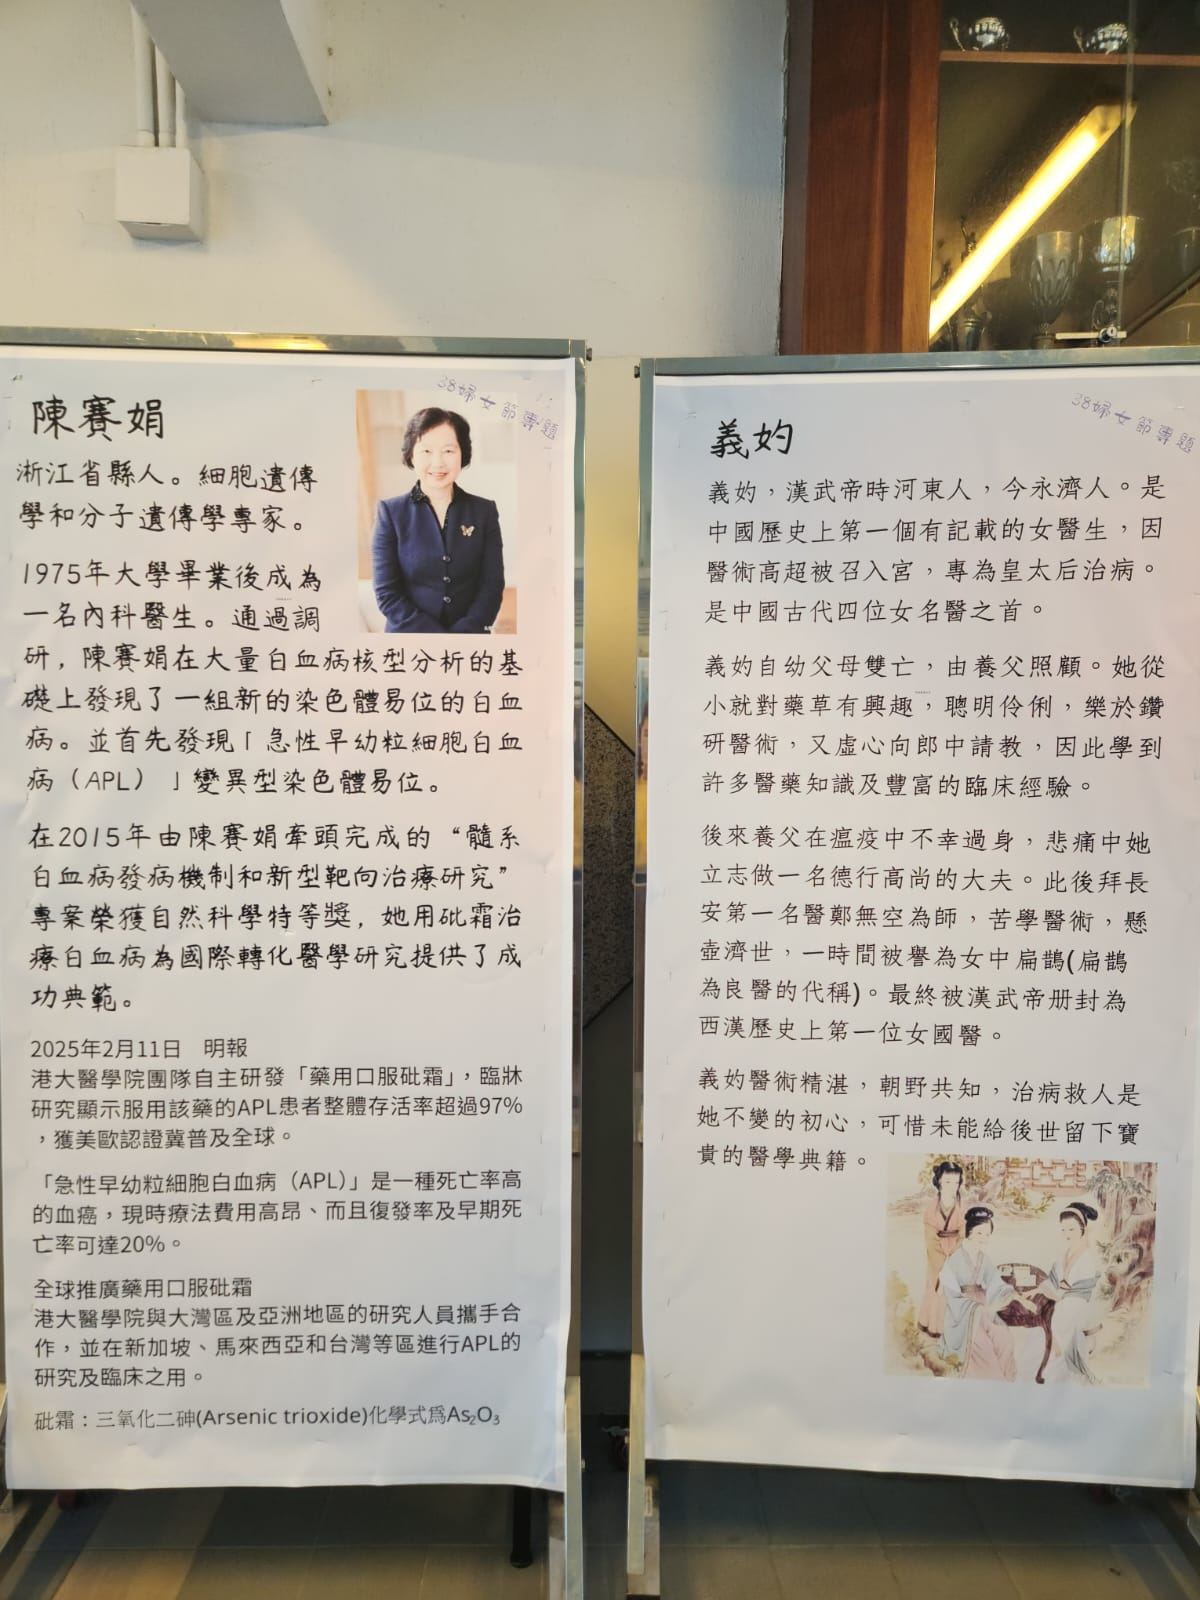 38婦女節專題
陳賽娟
淅江省縣人。細胞遺傳
學和分子遺傳學專家。
1975年大學畢業後成為
一名內科醫生。通過調
研,陳賽娟在大量白血病核型分析的基
礎上發現了一組新的染色體易位的白血
病。並首先發現「急性早幼粒細胞白血
病(APL)」變異型染色體易位。
在2015年由陳賽娟牽頭完成的“髓系
白血病發病機制和新型靶向治療研究”
專案榮獲自然科學特等獎,她用砒霜治
療白血病為國際轉化醫學研究提供了成
功典範。
2025年2月11日 明報
港大醫學院團隊自主研發「藥用口服砒霜」,臨牀
研究顯示服用該藥的APL患者整體存活率超過97%
,獲美歐認證冀普及全球。
「急性早幼粒細胞白血病(APL)」是一種死亡率高
的血癌,現時療法費用高昂、而且復發率及早期死
亡率可達20%。
全球推廣藥用口服砒霜
港大醫學院與大灣區及亞洲地區的研究人員攜手合
作,並在新加坡、馬來西亞和台灣等區進行APL的
研究及臨床之用。
砒霜:三氧化二砷(Arsenic trioxide)化學式爲As₂O₃
38婦女節專題
義妁
義妁,漢武帝時河東人,今永濟人。是
中國歷史上第一個有記載的女醫生,因
醫術高超被召入宮,專為皇太后治病。
是中國古代四位女名醫之首。
義妁自幼父母雙亡,由養父照顧。她從
小就對藥草有興趣,聰明伶俐,樂於鑽
研醫術,又虛心向郎中請教,因此學到
許多醫藥知識及豐富的臨床經驗。
後來養父在瘟疫中不幸過身,悲痛中她
立志做一名德行高尚的大夫。此後拜長
安第一名醫鄭無空為師,苦學醫術,懸
壺濟世,一時間被譽為女中扁鵲(扁鵲
為良醫的代稱)。最終被漢武帝册封為
西漢歷史上第一位女國醫。
義妁醫術精湛,朝野共知,治病救人是
她不變的初心,可惜未能給後世留下寶
貴的醫學典籍。